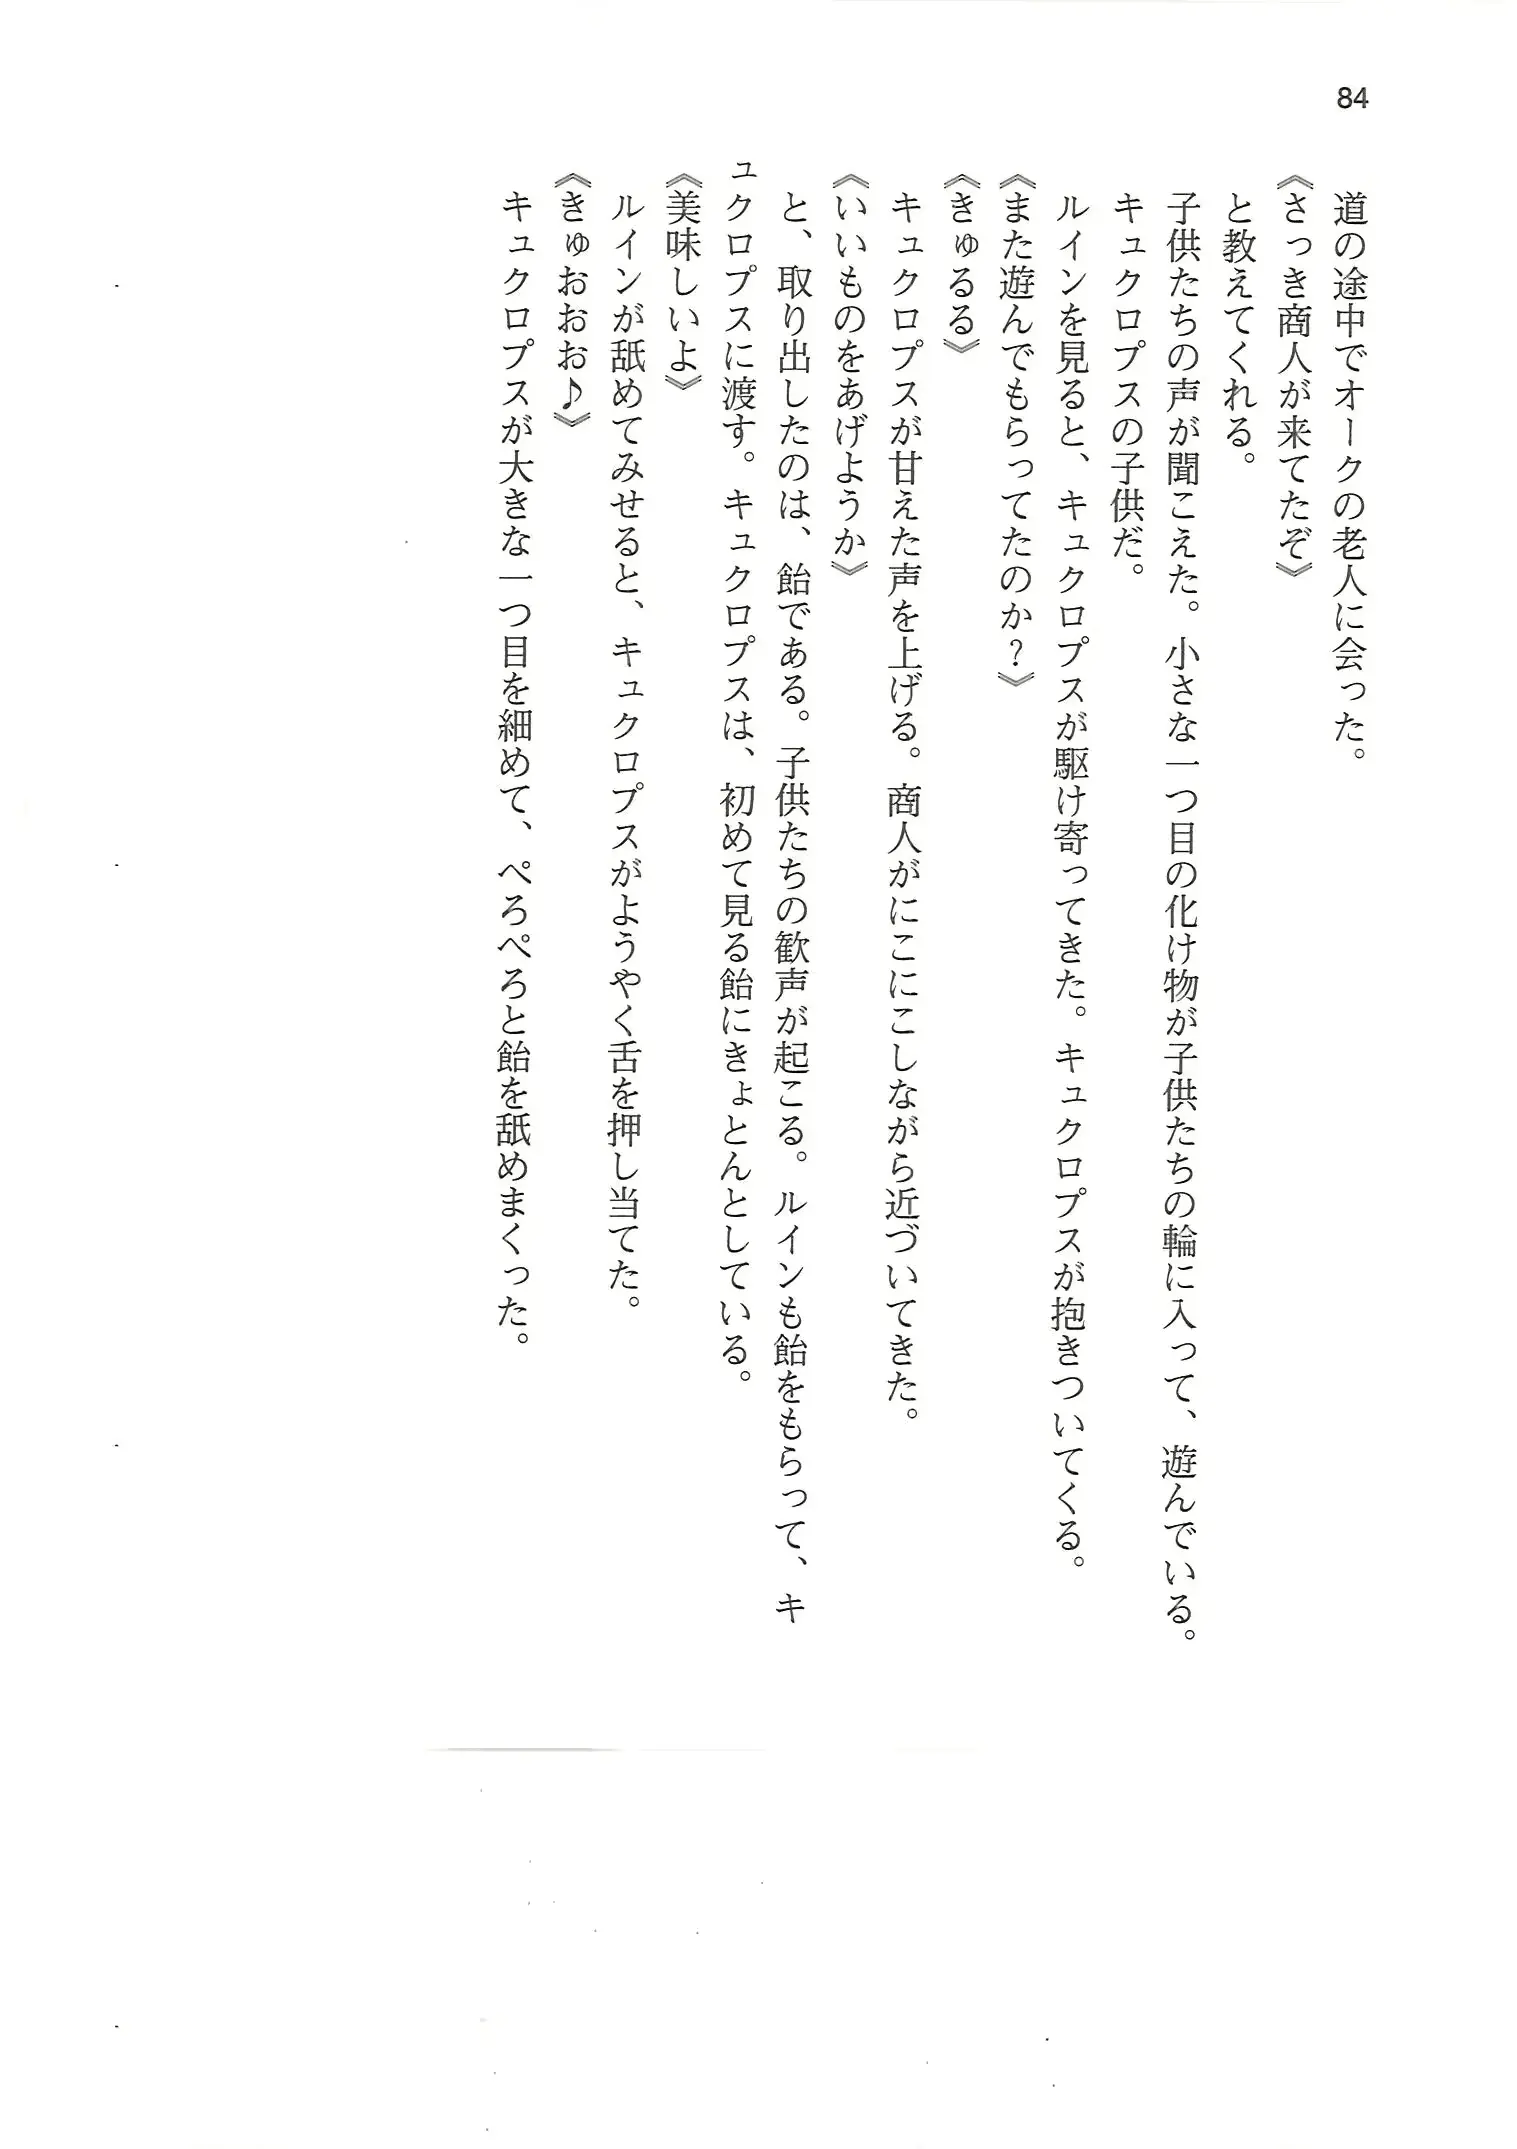 84
道の途中でオークの老人に会った。
《さっき商人が来てたぞ》
と教えてくれる。
子供たちの声が聞こえた。小さな一つ目の化け物が子供たちの輪に入って、遊んでいる。
キュクロプスの子供だ。
ルインを見ると、キュクロプスが駆け寄ってきた。キュクロプスが抱きついてくる。
《また遊んでもらってたのか?》
《きゅるる》
キュクロプスが甘えた声を上げる。商人がにこにこしながら近づいてきた。
《いいものをあげようか》
と、取り出したのは、飴である。子供たちの歓声が起こる。ルインも飴をもらって、キ
ュクロプスに渡す。キュクロプスは、初めて見る飴にきょとんとしている。
《美味しいよ》
ルインが舐めてみせると、キュクロプスがようやく舌を押し当てた。
《きゅおおお♪》
キュクロプスが大きな一つ目を細めて、ぺろぺろと飴を舐めまくった。